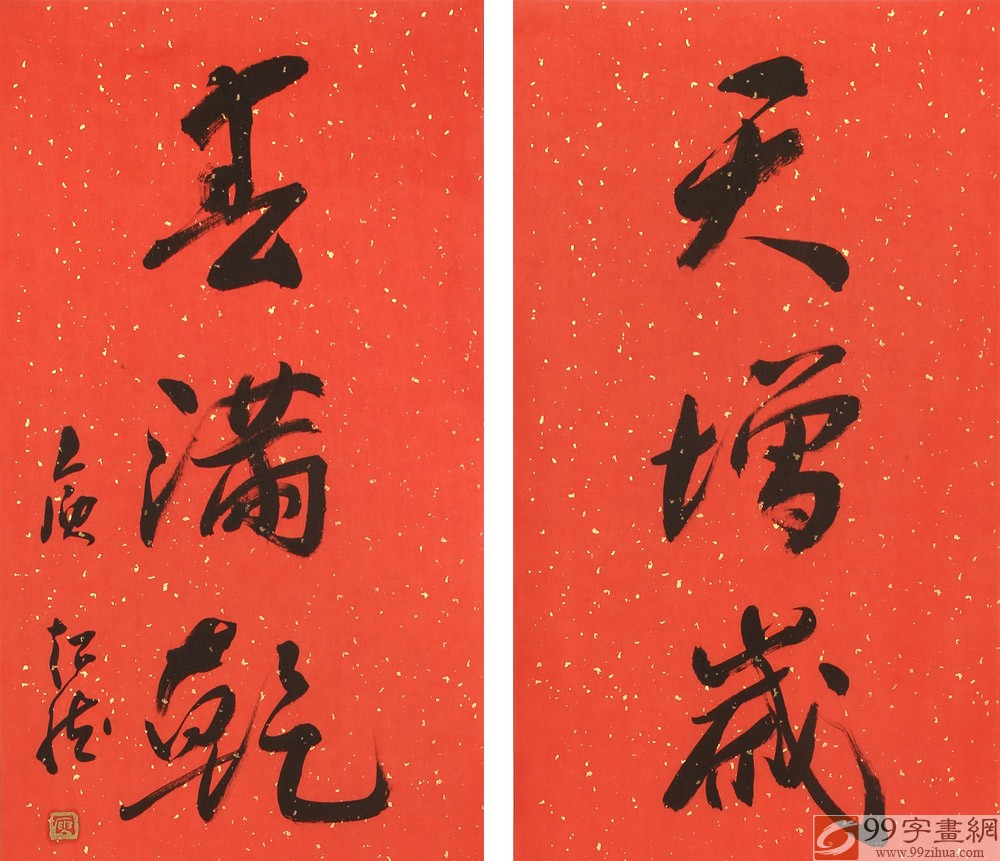 天增歲
春滿乾
99字畫網
www.99zihua.com